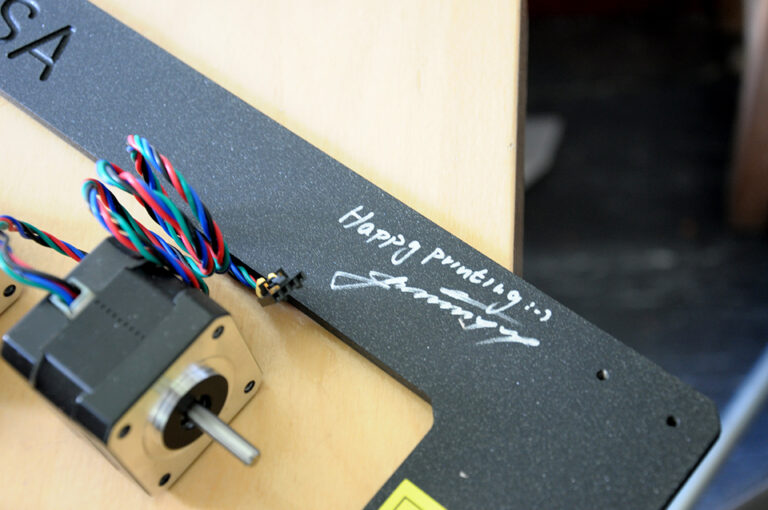 SA
Happy printing :-)